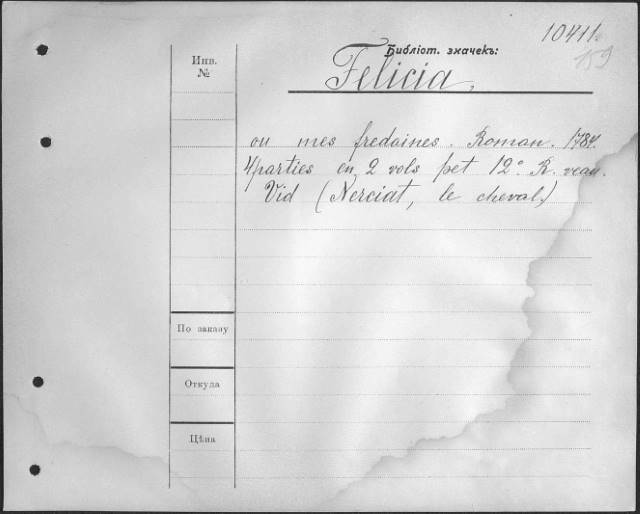 10411
189
Библіот. значекъ:
Felicia,
Инв.
№
ou mes fredaines. Roman. 1784.
4 parties en 2 vols pet 12°. R. veau.
Vid (Nerciat, le cheval.)
По заказу
Откуда
Цѣна